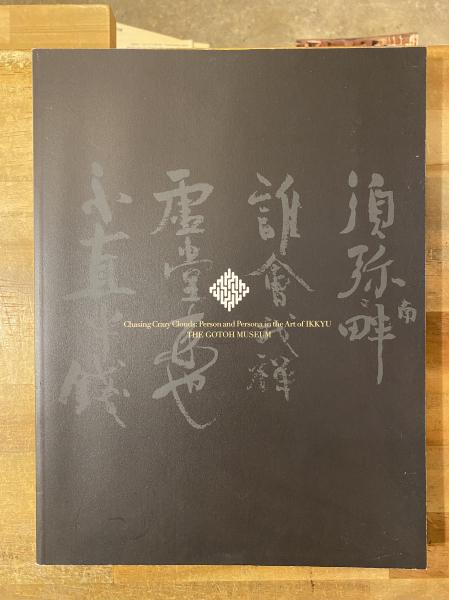 須弥畔
南
誰會我禅
虚堂来也
不直半銭
Chasing Crazy Clouds: Person and Persona in the Art of IKKYU
THE GOTOH MUSEUM